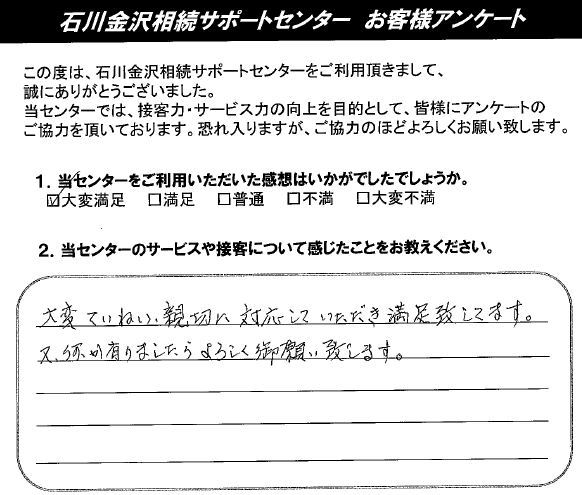 石川金沢相続サポートセンター お客様アンケート
この度は、石川金沢相続サポートセンターをご利用頂きまして、
誠にありがとうございました。
当センターでは、接客力・サービス力の向上を目的として、皆様にアンケートの
ご協力を頂いております。恐れ入りますが、ご協力のほどよろしくお願い致します。
1. 当センターをご利用いただいた感想はいかがでしたでしょうか。
☑大変満足 □満足 □普通 □不満 □大変不満
2. 当センターのサービスや接客について感じたことをお教えください。
大変ていねい、親切に対応していただき満足致してます。
又、何か有りましたらよろしく御願い致します。